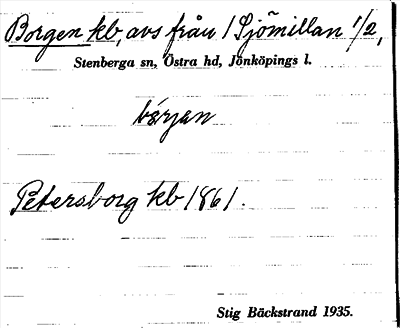 Borgen kb, avs från 1 Sjömillan 1/2,
Stenberga sn, Östra hd, Jönköpings l.
bórjan
Petersborg kb 1861.
Stig Bäckstrand 1935.